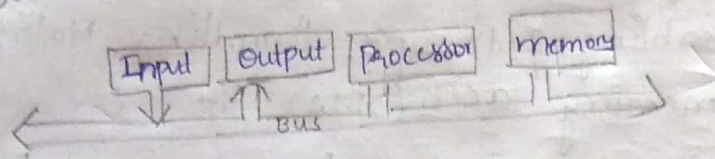 Input Output Processor memory
BUS